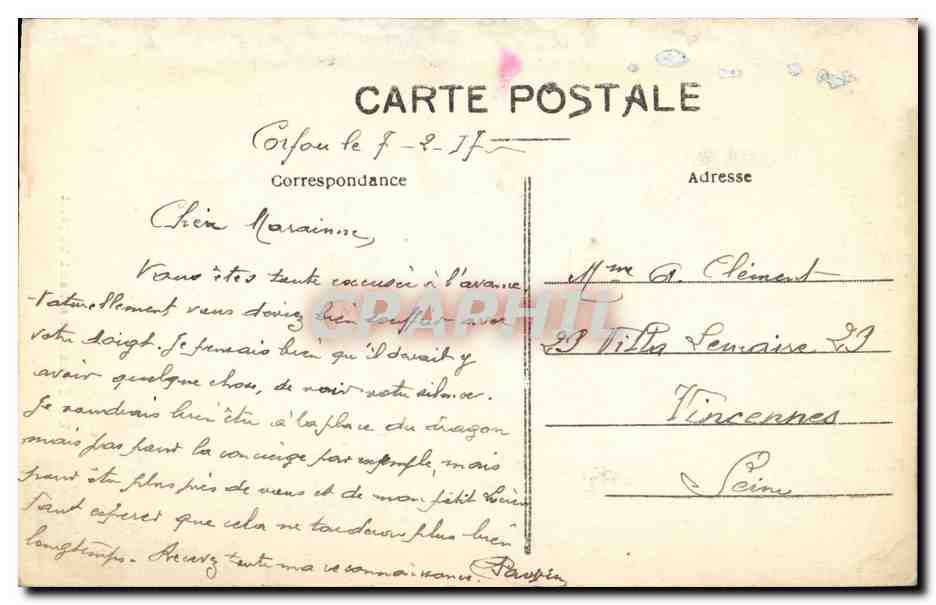 CARTE POSTALE
Corfou le 7-2-17
Correspondance
Adresse
Chère Marainne,
Vous êtes toute excusée à l'avance,
naturellement vous deviez bien souffrir avec
votre doigt. Je pensais bien qu'il devait y
avoir quelque chose, de voir votre silence.
Je voudrais bien être à la place du dragon
mais pas pour la concierge par exemple, mais
pour être plus près de vous et de mon petit
Faut espérer que cela ne tardera plus bien
longtemps. Recevez toute ma reconnaissance.
Mme A. Clément
23 Villa Lemaire 23
Vincennes
Seine
CPAPHIL